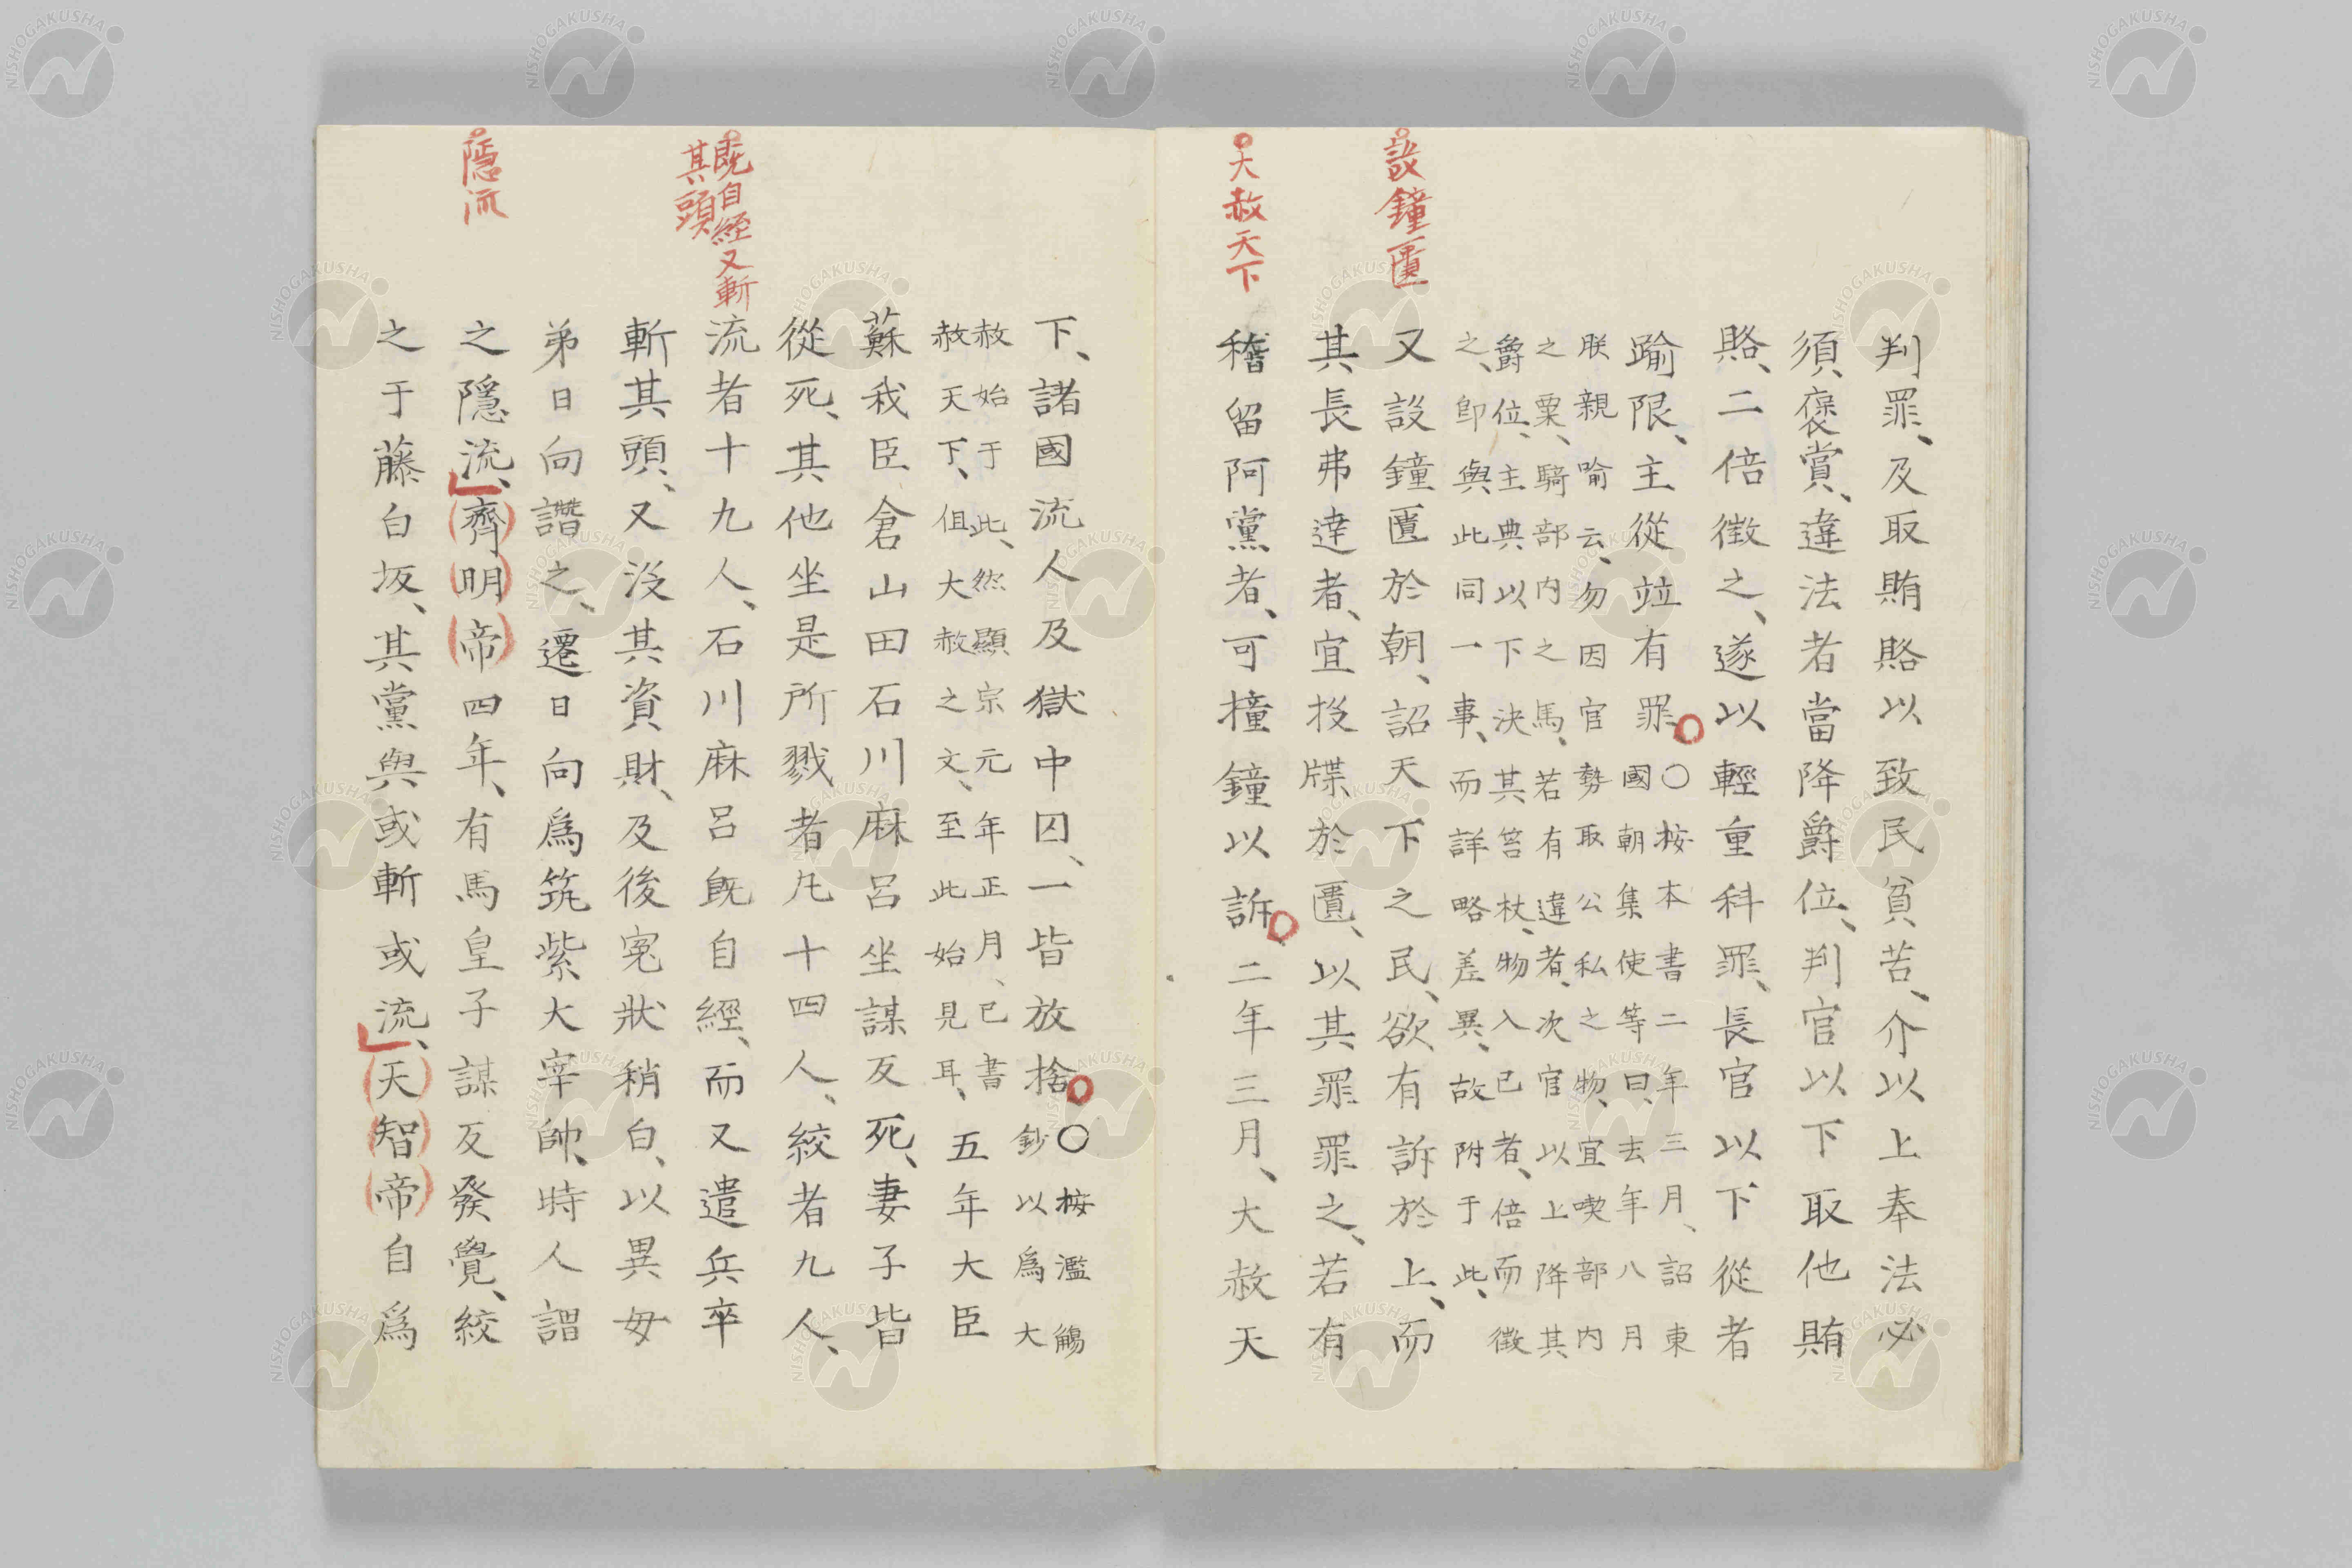 判罪、及取賄賂以致民貧苦、介以上奉法必
須褒賞、違法者當降爵位、判官以下取他賄
賂、二倍徴之、遂以輕重科罪、長官以下從者
踰限、主從竝有罪
○按本書二年三月、詔東
國朝集使等曰、去年八月
朕親喻云、勿因官勢取公私之物、宜喫部内
之粟、騎部内之馬、若有違者、次官以上降其
爵位、主典以下決其笞杖、物入已者、倍而徴
之、卽與此同一事、而詳略差異、故附于此、
設鐘匱
又設鐘匱於朝、詔天下之民、欲有訴於上、而
其長弗逹者、宜投牒於匱、以其罪罪之、若有
大赦天下
稽留阿黨者、可撞鐘以訴、二年三月、大赦天
下、諸國流人及獄中囚、一皆放捨
○按濫觴
鈔以爲大
赦始于此、然顯宗元年正月、已書
赦天下、但大赦之文、至此始見耳、
五年大臣
蘇我臣倉山田石川麻呂坐謀反死、妻子皆
從死、其他坐是所戮者凡十四人、絞者九人、
既自經又斬
其頭
流者十九人、石川麻呂既自經、而又遣兵卒
斬其頭、又沒其資財、及後寃狀稍白、以異母
弟日向譖之、遷日向爲筑紫大宰帥、時人謂
隱流
之隱流、(齊)(明)(帝)四年、有馬皇子謀反發覺、絞
之于藤白坂、其黨與或斬或流、(天)(智)(帝)自爲
NISHOGAKUSHA